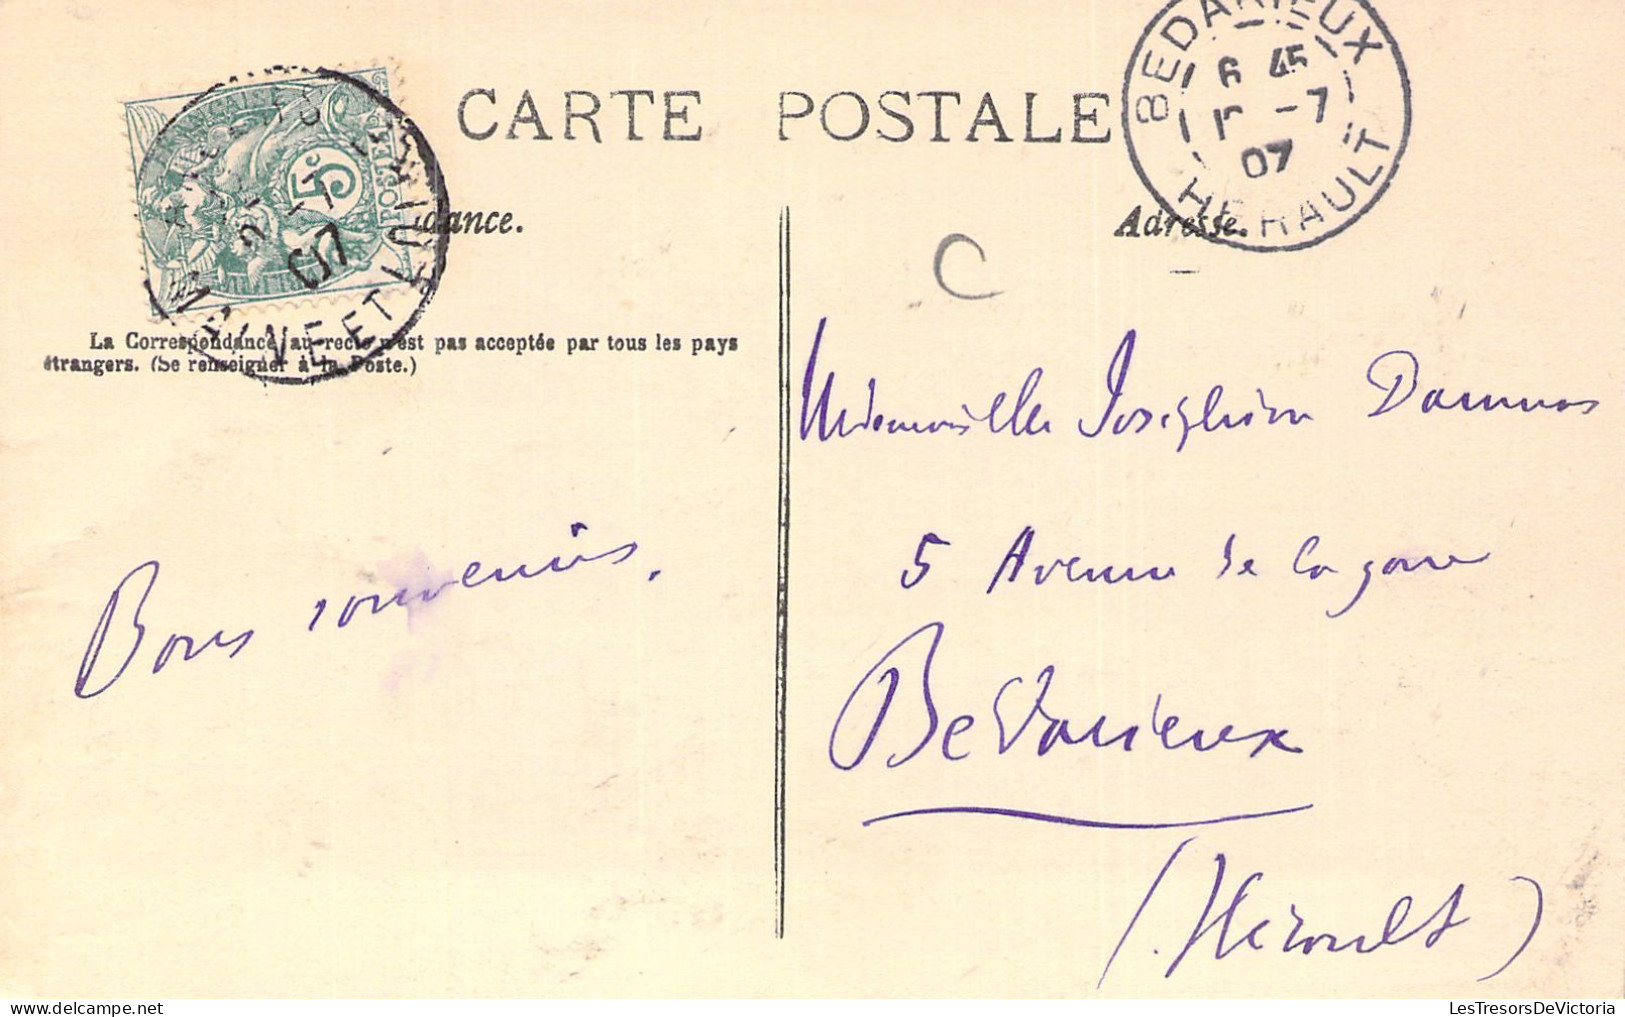 CARTE POSTALE
BEDARIEUX
6 45
-7
07
HERAULT
5c
POSTES
-7
07
NE ET
dance.
Adresse.
C
La Correspondance au recto n'est pas acceptée par tous les pays
étrangers. (Se renseigner à la Poste.)
Mademoiselle
5 Avenue de la gare
Bons souvenirs.
Bedarieux
(Hérault)
LesTresorsDeVictoria